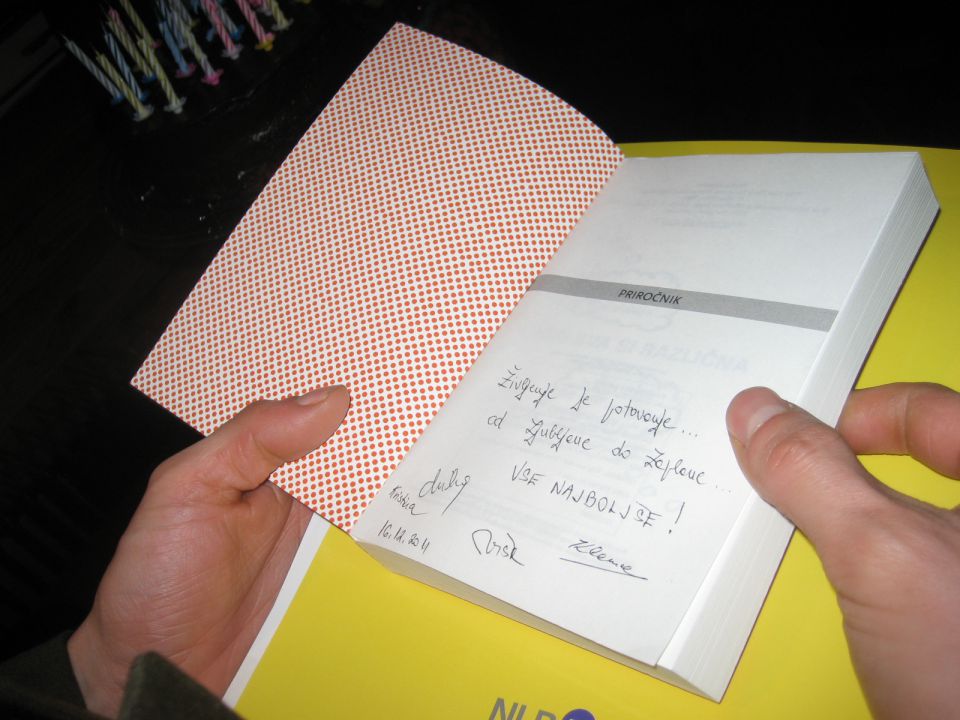 PRIROČNIK
Življenje je potovanje...
od Ljubljane do Zaplane...
VSE NAJBOLJŠE!
Kristina
16.12.2011
Klemen
NLB